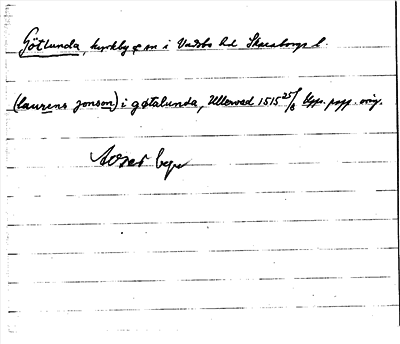 Götlunda, kyrkby o sn i Vadsbo hd Skaraborgs l.
(laurens jonson) i gøtalunda, Ullervad 1515 25/8 Upps. papp. orig.